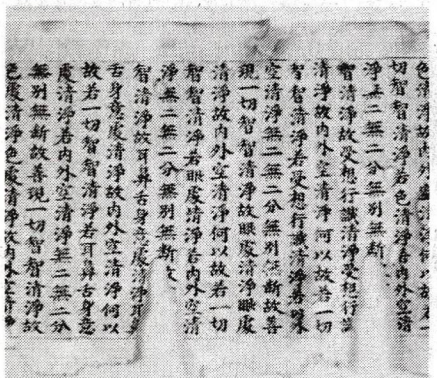 色清淨故内外空清淨故若一
切智智清淨若色清淨若内外空清
淨無二無二分無別無斷
智清淨故受想行識清淨受想行識
清淨故内外空清淨何以故若一切
智智清淨若受想行識清淨若内外
空清淨無二無二分無別無斷故善
現一切智智清淨故眼處清淨眼處
清淨故内外空清淨何以故若一切
智智清淨若眼處清淨若内外空清
淨無二無二分無別無斷故
智清淨故耳鼻舌身意處清淨耳鼻
舌身意處清淨故内外空清淨何以
故若一切智智清淨若耳鼻舌身意
處清淨若内外空清淨無二無二分
無別無斷故善現一切智智清淨故
色處清淨色處清淨故内外空清淨